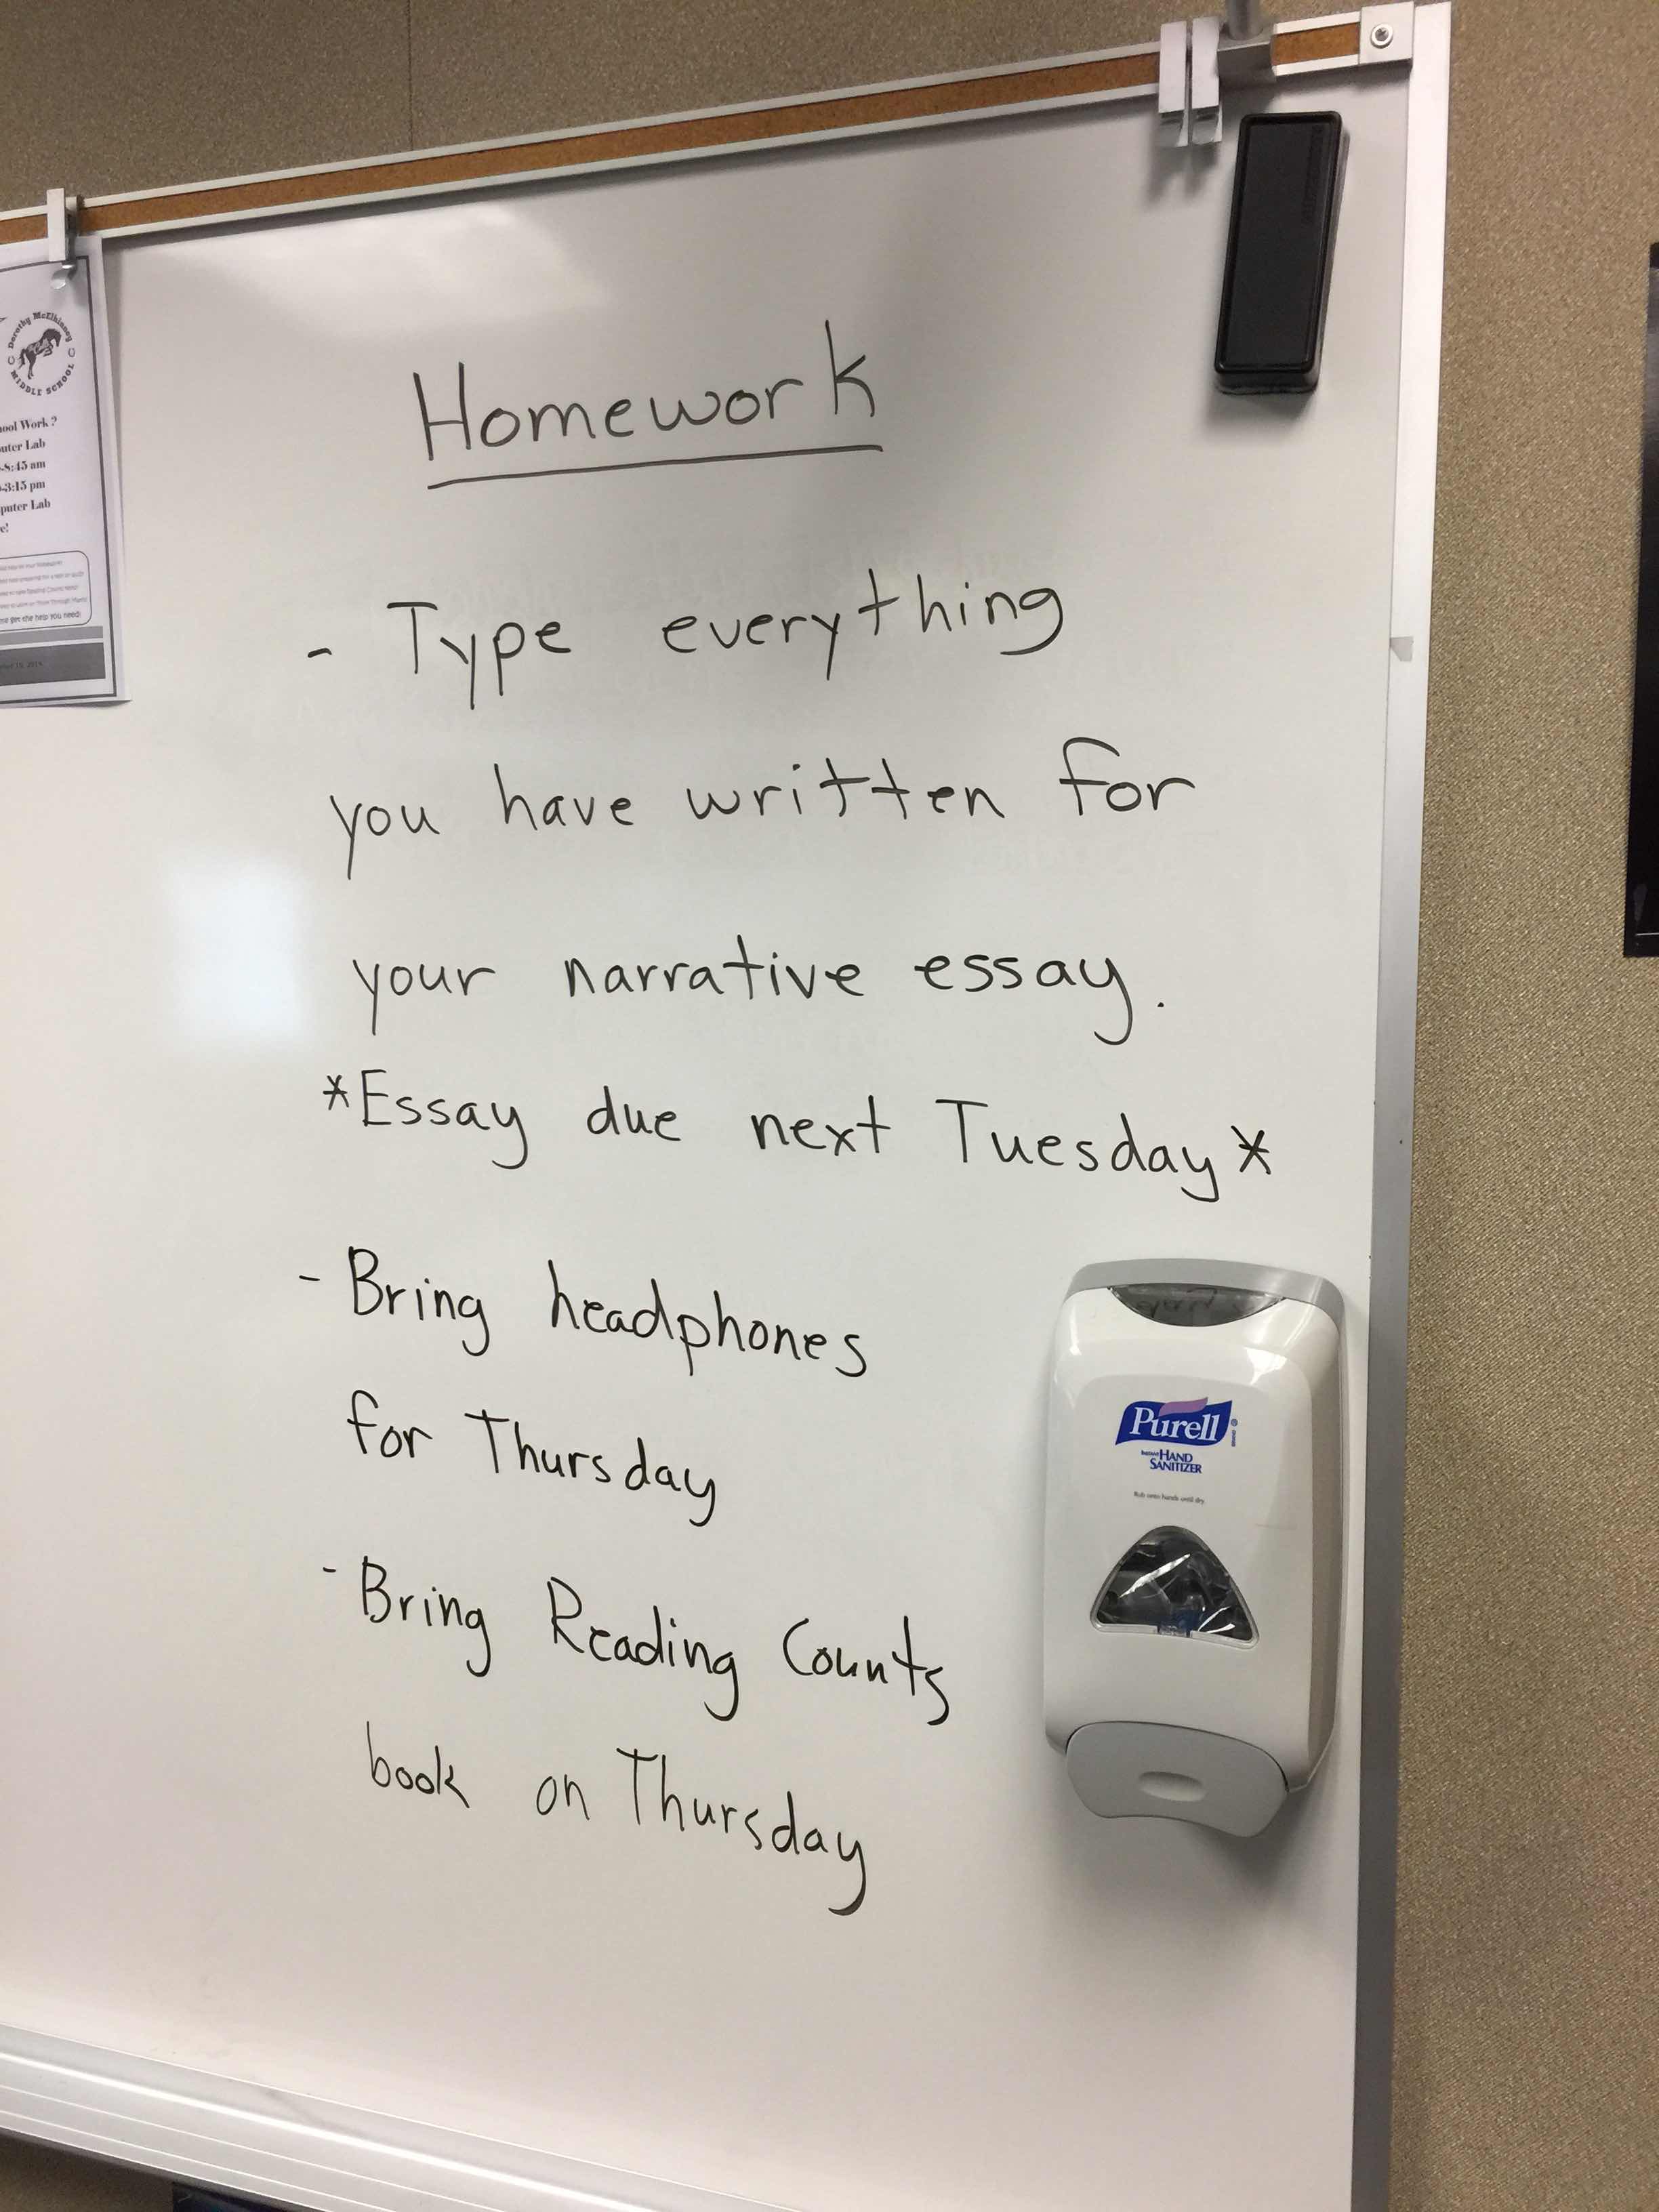 Homework
- Type everything
you have written for
your narrative essay.
*Essay due next Tuesday*
- Bring headphones
for Thursday
- Bring Reading Counts
book on Thursday
Dorothy McElhinney
MIDDLE SCHOOL
ool Work?
uter Lab
-8:45 am
-3:15 pm
puter Lab
e!
get the help you need!
Purell
INSTANT HAND
SANITIZER
Rub onto hands until dry